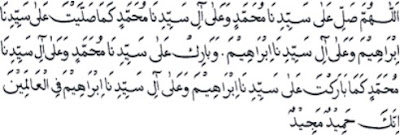 اَللّٰهُمَّ صَلِّ عَلَى سَيِّدِنَا مُحَمَّدٍ وَعَلَى آلِ سَيِّدِنَا مُحَمَّدٍ كَمَا صَلَّيْتَ عَلَى سَيِّدِنَا
اِبْرَاهِيْمَ وَعَلَى آلِ سَيِّدِنَا اِبْرَاهِيْمَ . وَبَارِكْ عَلَى سَيِّدِنَا مُحَمَّدٍ وَعَلَى آلِ سَيِّدِنَا
مُحَمَّدٍ كَمَا بَارَكْتَ عَلَى سَيِّدِنَا اِبْرَاهِيْمَ وَعَلَى آلِ سَيِّدِنَا اِبْرَاهِيْمَ فِى الْعَالَمِيْنَ
اِنَّكَ حَمِيْدٌ مَجِيْدٌ